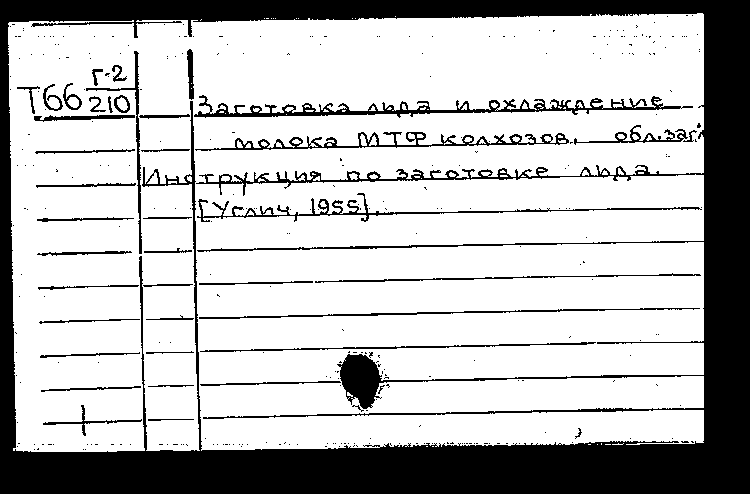 Г-2
Т66 210
Заготовка льда и охлаждение
молока МТФ колхозов. обл.загл
Инструкция по заготовке льда.
[Углич, 1955].